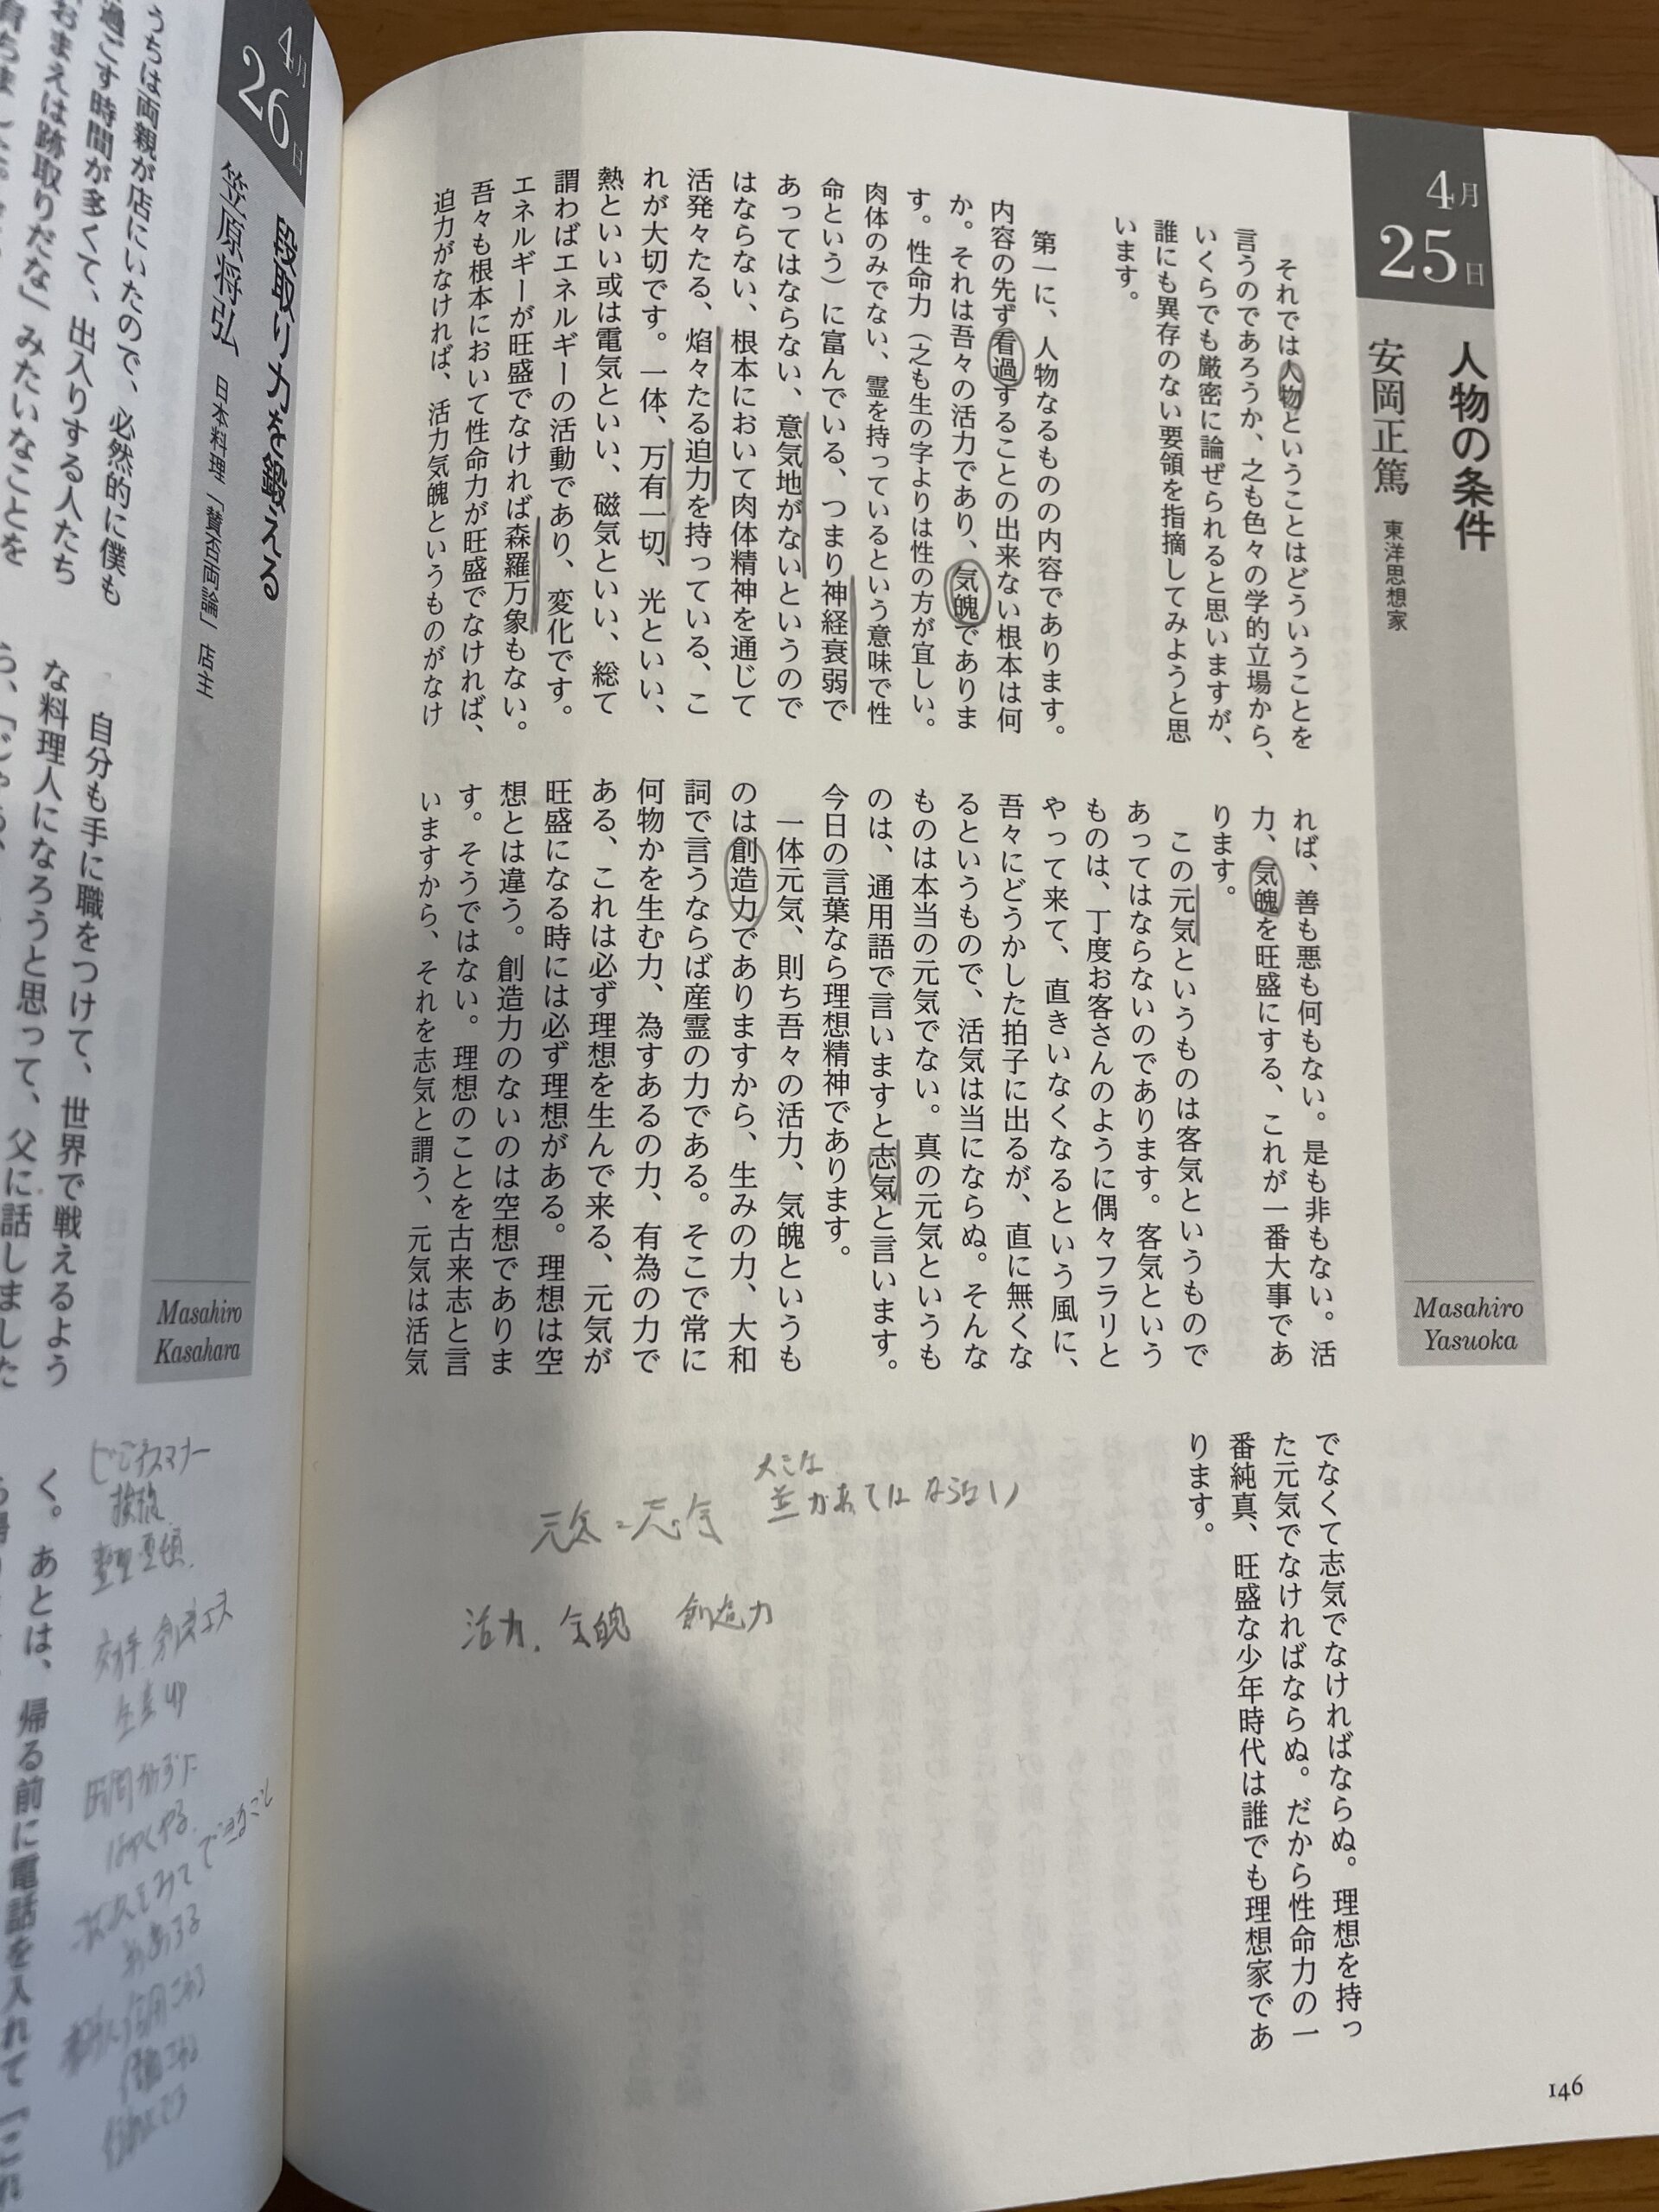 4月
25日
人物の条件
安岡正篤 東洋思想家
Masahiro
Yasuoka
それでは人物ということはどういうことを
言うのであろうか、之も色々の学的立場から、
いくらでも厳密に論ぜられると思いますが、
誰にも異存のない要領を指摘してみようと思
います。
第一に、人物なるものの内容であります。
内容の先ず看過することの出来ない根本は何
か。それは吾々の活力であり、気魄でありま
す。性命力（之も生の字よりは性の方が宜しい。
肉体のみでない、霊を持っているという意味で性
命という）に富んでいる、つまり神経衰弱で
あってはならない、意気地がないというので
はならない、根本において肉体精神を通じて
活発々たる、焰々たる迫力を持っている、こ
れが大切です。一体、万有一切、光といい、
熱といい或は電気といい、磁気といい、総て
謂わばエネルギーの活動であり、変化です。
エネルギーが旺盛でなければ森羅万象もない。
吾々も根本において性命力が旺盛でなければ、
迫力がなければ、活力気魄というものがなけ
れば、善も悪も何もない。是も非もない。活
力、気魄を旺盛にする、これが一番大事であ
ります。
この元気というものは客気というもので
あってはならないのであります。客気という
ものは、丁度お客さんのように偶々フラリと
やって来て、直きいなくなるという風に、
吾々にどうかした拍子に出るが、直に無くな
るというもので、活気は当にならぬ。そんな
ものは本当の元気でない。真の元気というも
のは、通用語で言いますと志気と言います。
今日の言葉なら理想精神であります。
一体元気、則ち吾々の活力、気魄というも
のは創造力でありますから、生みの力、大和
詞で言うならば産霊の力である。そこで常に
何物かを生む力、為すあるの力、有為の力で
ある、これは必ず理想を生んで来る、元気が
旺盛になる時には必ず理想がある。理想は空
想とは違う。創造力のないのは空想でありま
す。そうではない。理想のことを古来志と言
いますから、それを志気と謂う、元気は活気
でなくて志気でなければならぬ。理想を持っ
た元気でなければならぬ。だから性命力の一
番純真、旺盛な少年時代は誰でも理想家であ
ります。
元気=志気
活力、気魄 創造力
146
4月
26日
段取り力を鍛える
笠原将弘 日本料理「賛否両論」店主
Masahiro
Kasahara
うちは両親が店にいたので、必然的に僕も
過ごす時間が多くて、出入りする人たち
おまえは跡取りだな」みたいなことを
自分も手に職をつけて、世界で戦えるよう
な料理人になろうと思って、父に話しました
く。あとは、帰る前に電話を入れて「これ
ビジネスマナー
挨拶
整理整頓